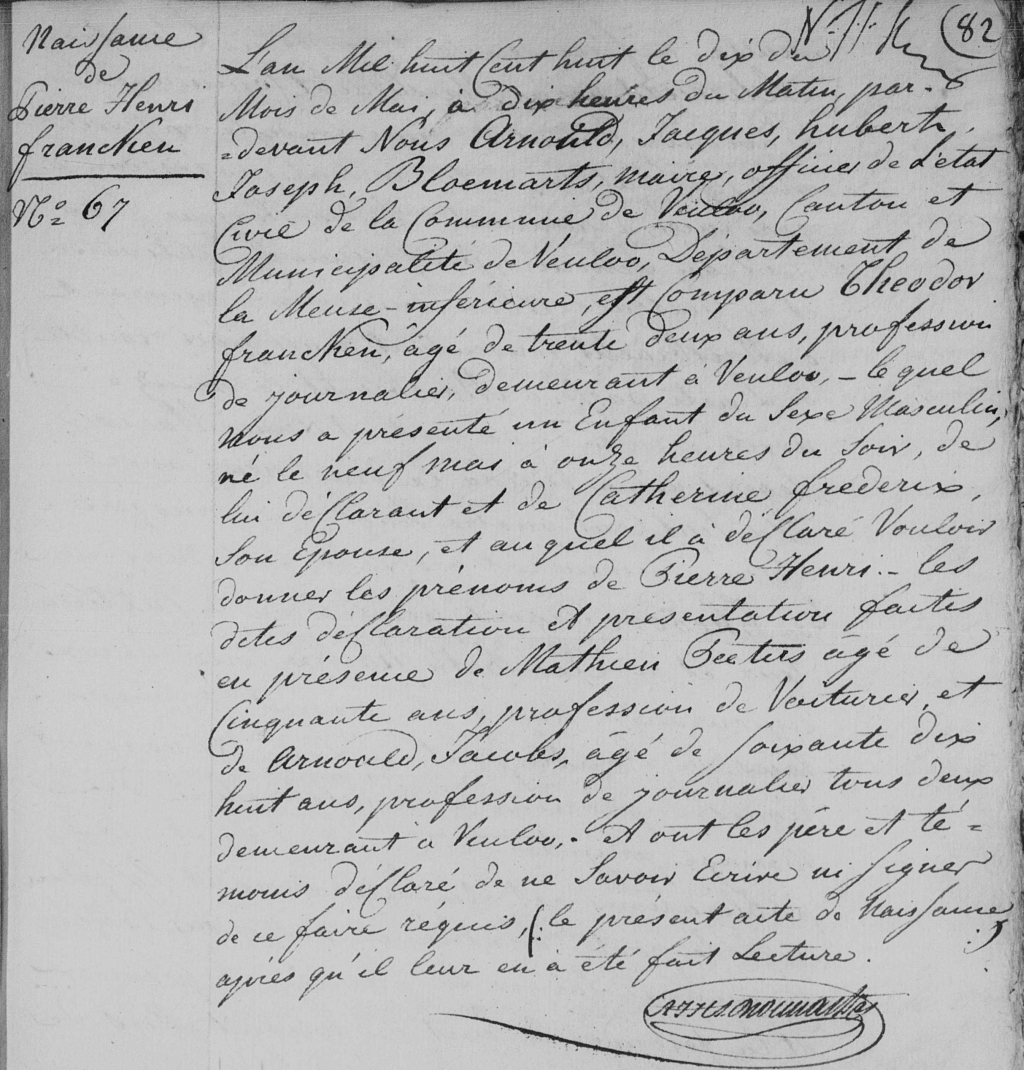 Naissance
de
Pierre Henri
francken
No= 67
82
L'an Mil huit Cent huit le dix du
Mois de Mai, à dix heures du Matin, par-
=devant Nous Arnould, Jacques, hubert,
Joseph, Bloemarts, maire, officier de L'etat
Civil de la Commune de Venloo, Canton et
Municipalité de Venloo, Département de
la Meuse-inférieure, est Comparu Theodor
francken, âgé de trente deux ans, profession
de journalier, demeurant à Venloo, - le quel
nous a présenté un Enfant du Sexe Masculin,
né le neuf mai à onze heures du Soir, de
lui déClarant et de Catherine frederix,
Son Epouse, et au quel il à déClaré Vouloir
donner les prénoms de Pierre Henri. - les
dites déClaration et présentation faites
en présence de Mathieu Peeters âgé de
Cinquante ans, profession de Voiturier, et
de Arnould, Jacobs, âgé de soixante dix
huit ans, profession de journalier tous deux
demeurant à Venloo, . et ont les père et té=
moins déClaré de ne Savoir Ecrire ni signer
de ce faire réquis, (: le présent acte de Naissance :)
après qu'il leur en à été fait Lecture.